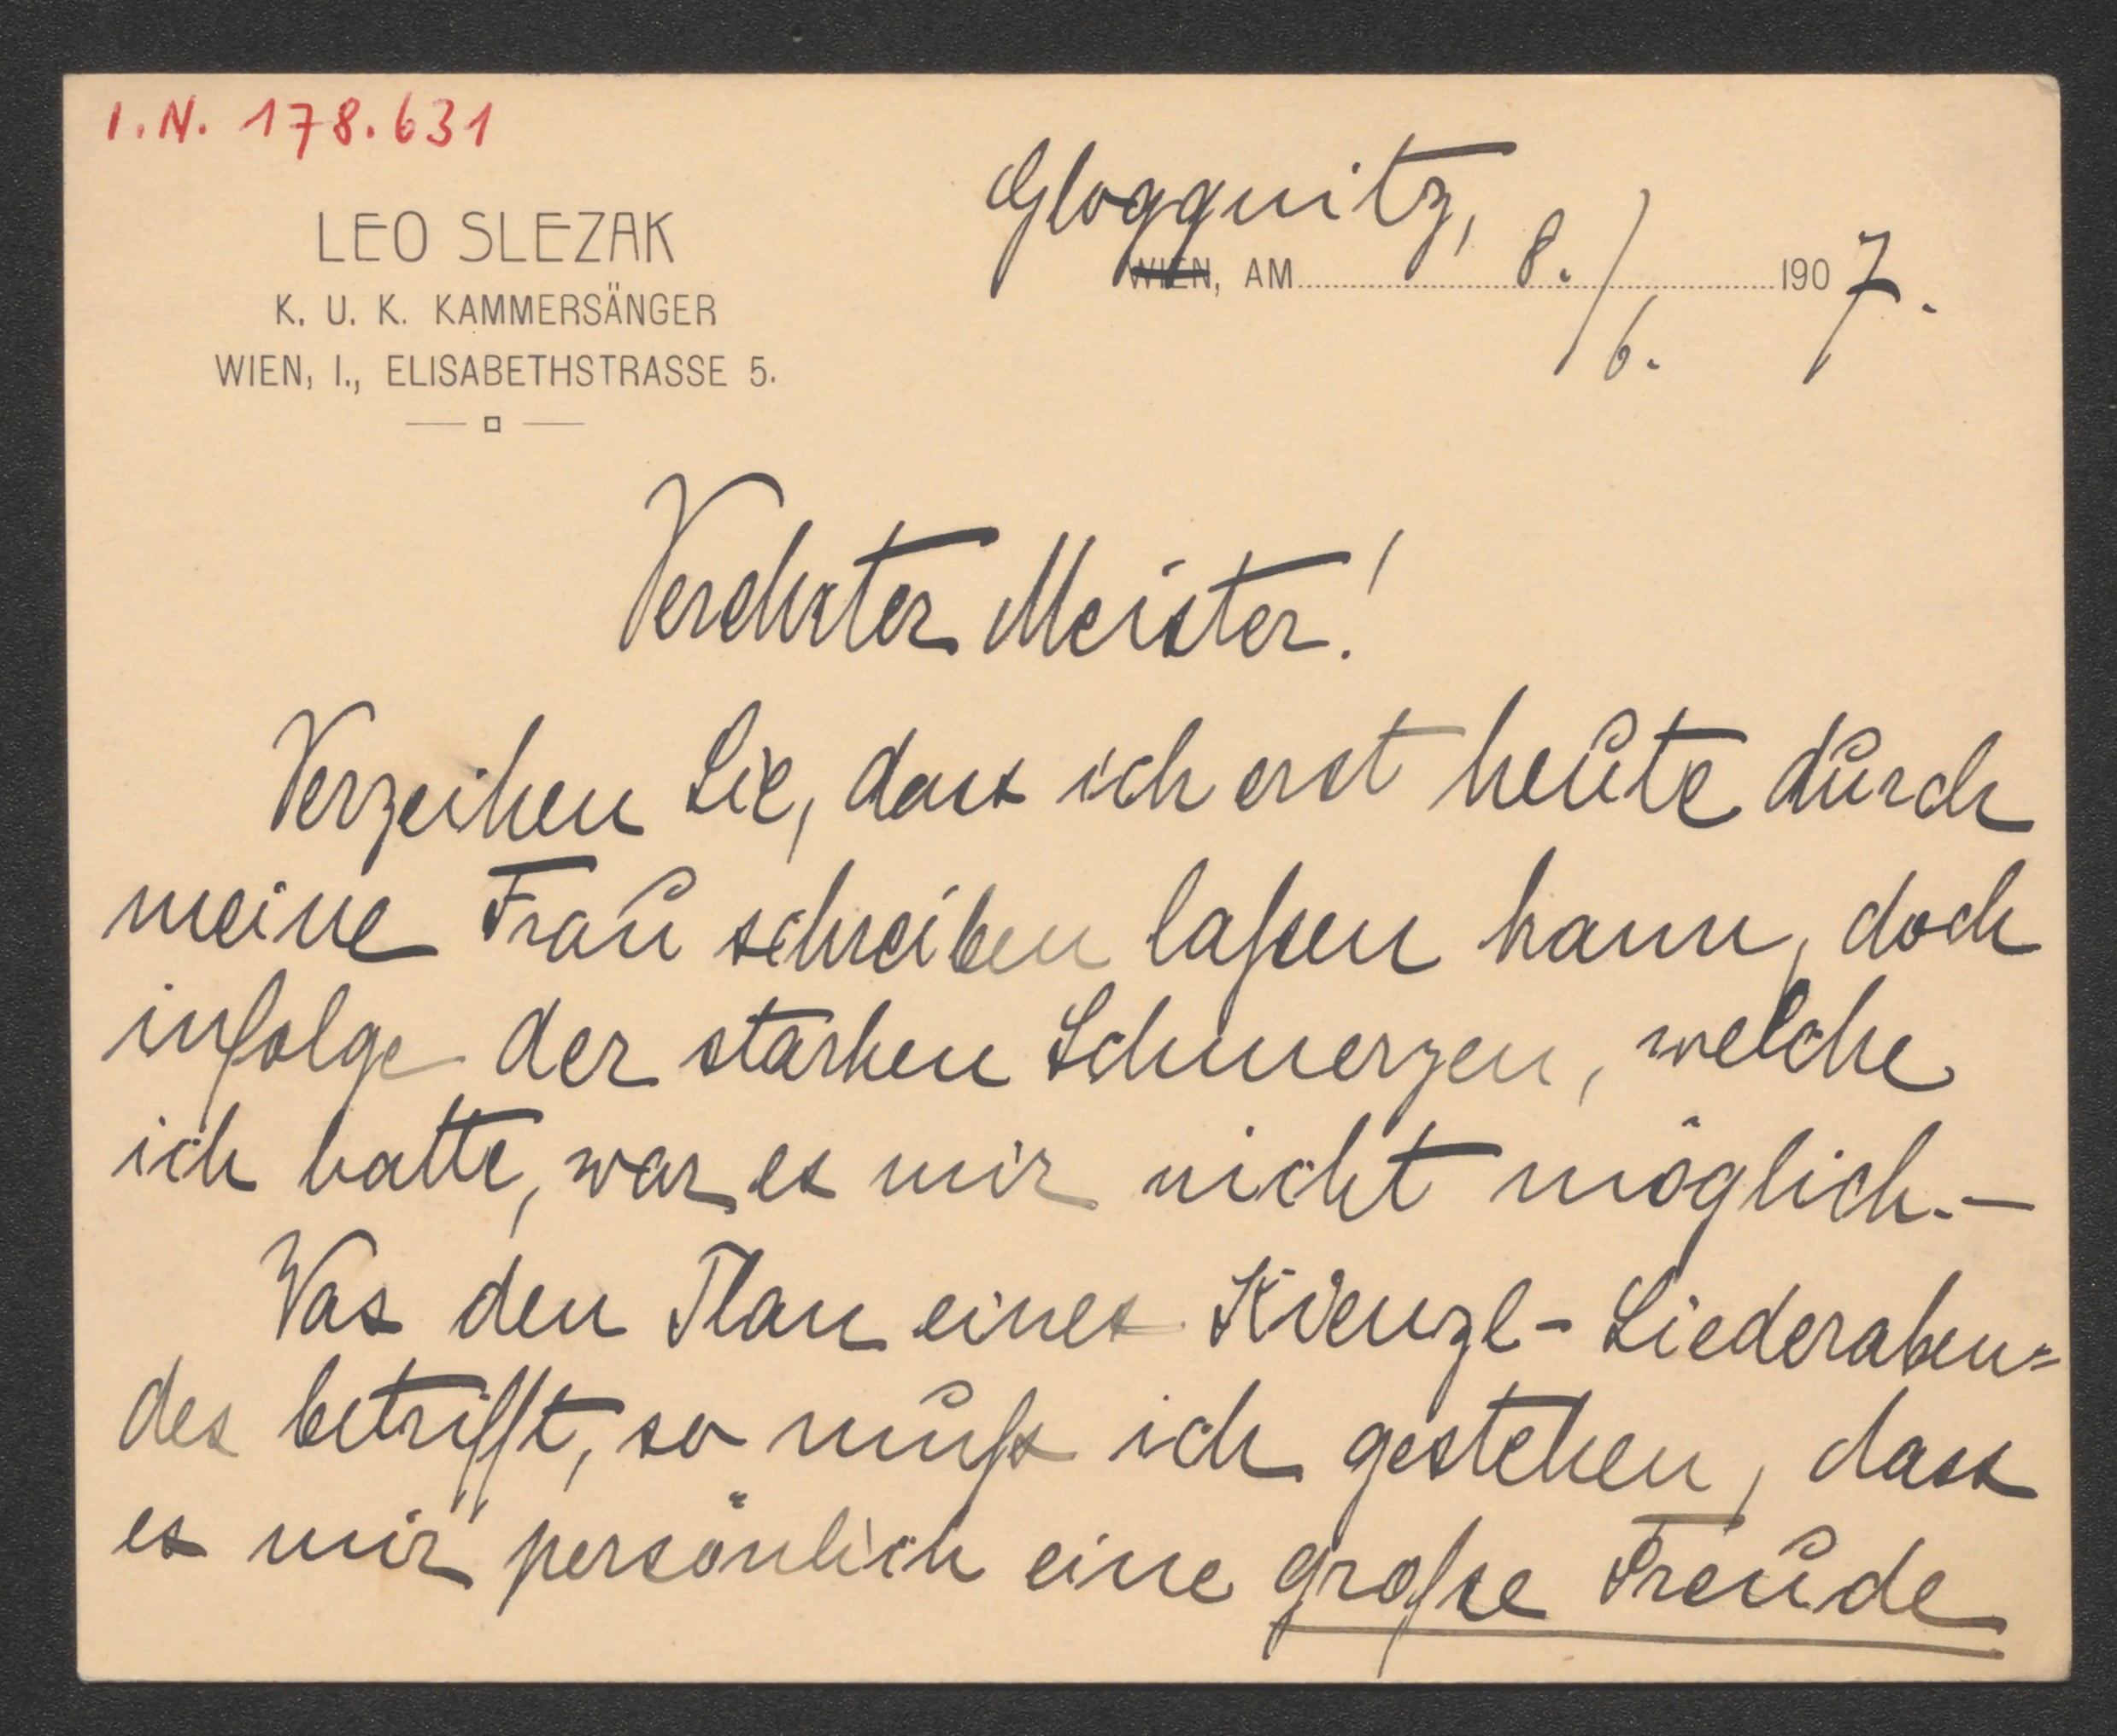 I.N. 178.631
LEO SLEZAK
K. U. K. KAMMERSÄNGER
WIEN, I., ELISABETHSTRASSE 5.
Gloggnitz,
WIEN, AM 8./6. 1907.
Verehrter Meister!
Verzeihen Sie, dass ich erst heute durch
meine Frau schreiben laßen kann, doch
infolge der starken Schmerzen, welche
ich hatte, war es mir nicht möglich.-
Was den Plan eines Kienzl-Liederaben=
des betrifft, so muß ich gestehen, dass
es mir persönlich eine große Freude